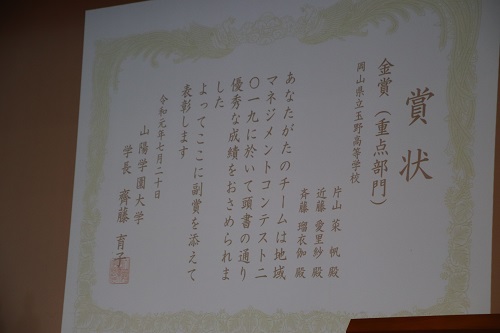 賞状
金賞（重点部門）
岡山県立玉野高等学校
片山 菜帆 殿
近藤 愛里紗 殿
斉藤 瑠衣伽 殿
あなたがたのチームは地域
マネジメントコンテスト二
〇一九に於いて頭書の通り
優秀な成績をおさめられま
した
よってここに副賞を添えて
表彰します
令和元年七月二十日
山陽学園大学
学長 齊藤 育子